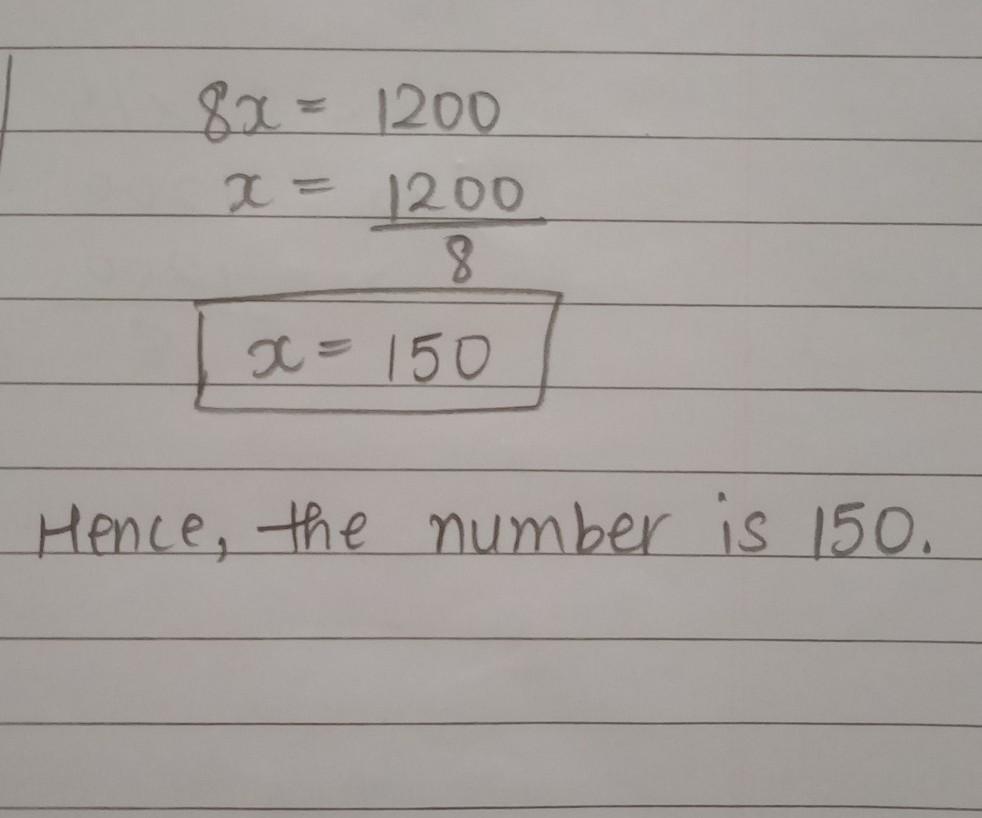 8x = 1200
x = 1200
8
x = 150
Hence, the number is 150.